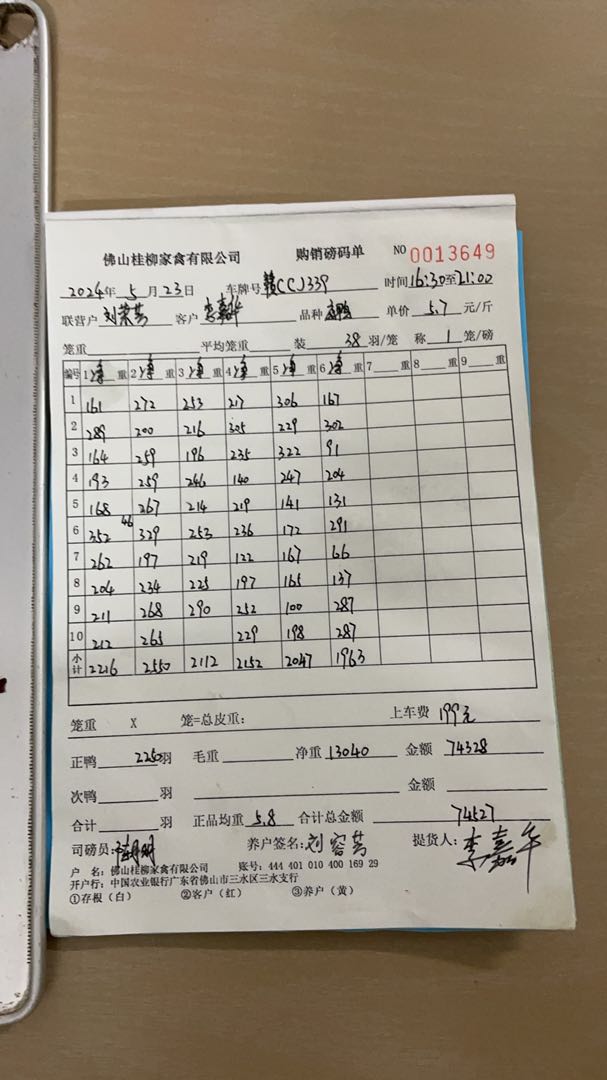 佛山桂柳家禽有限公司 购销磅码单 NO 0013649
2024年 5 月 23日 车牌号 赣CCJ339 时间 16:30至21:00
联营户 刘荣芳 客户 李嘉华 品种 单价 5.7 元/斤
笼重 平均笼重 装 38 羽/笼 称 1 笼/磅
编号 1 净 重 2 净 重 3 净 重 4 净 重 5 净 重 6 净 重 7 重 8 重 9 重
1 161 272 253 217 306 167
2 289 200 216 305 229 302
3 164 259 196 235 322 91
4 193 259 246 140 247 204
5 168 267 214 219 141 131
6 352 46 329 253 236 172 291
7 262 197 219 122 167 66
8 204 234 225 197 165 137
9 211 268 290 252 100 287
10 212 265 229 198 287
小计 2216 2550 2112 2152 2047 1963
笼重 X 笼=总皮重： 上车费 199元
正鸭 2250羽 毛重 净重 13040 金额 74328
次鸭 羽 金额
合计 羽 正品均重 5.8 合计总金额 74527
司磅员： 养户签名：刘容芳 提货人：李嘉华
户 名：佛山桂柳家禽有限公司 账号：444 401 010 400 169 29
开户行：中国农业银行广东省佛山市三水区三水支行
①存根（白） ②客户（红） ③养户（黄）